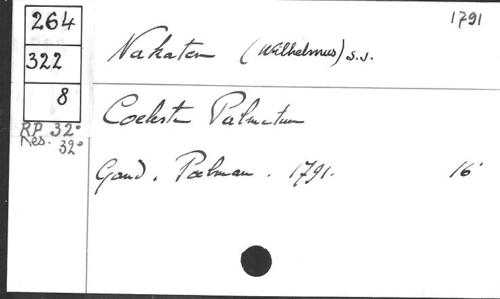 1791
264
322
8
RP 32°
Res. 32°
Nakaten (Wilhelmus) s.j.
Coeleste Palmetum
Gand. Poelman. 1791. 16°